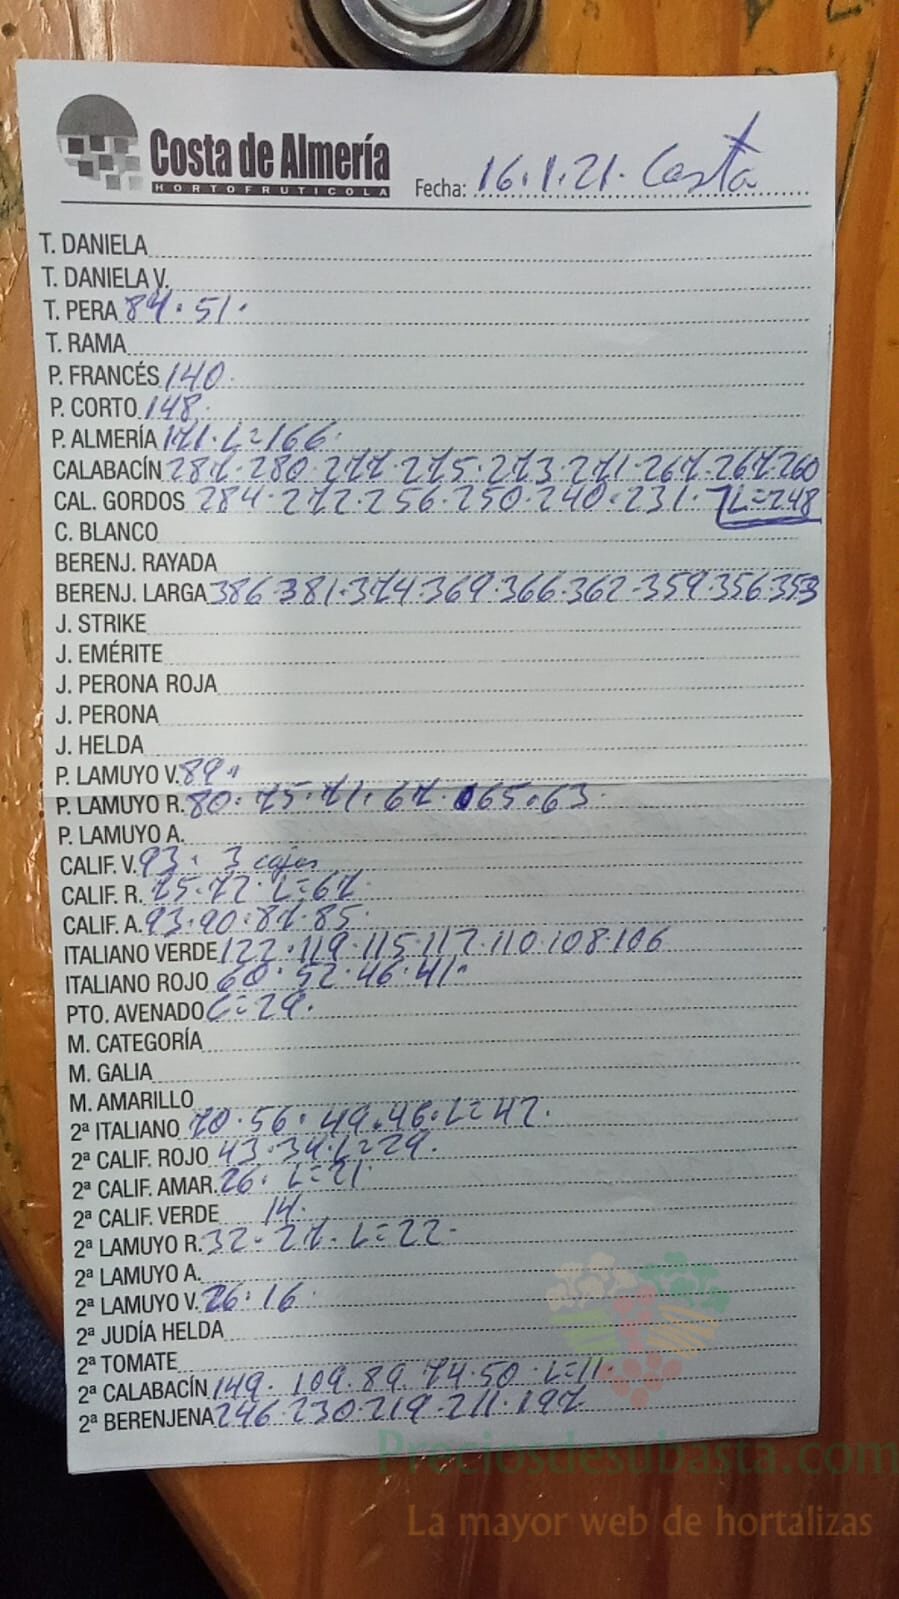 Costa de Almería
HORTOFRUTICOLA
Fecha: 16.1.21. Costa
T. DANIELA
T. DANIELA V.
T. PERA 84. 51.
T. RAMA
P. FRANCÉS 140.
P. CORTO 148.
P. ALMERÍA 171. L=166.
CALABACÍN 287. 280. 277. 275. 273. 271. 267. 267. 260
CAL. GORDOS 284. 272. 256. 250. 240. 231. L=248
C. BLANCO
BERENJ. RAYADA
BERENJ. LARGA 386. 381. 374. 369. 366. 362. 359. 356. 353
J. STRIKE
J. EMÉRITE
J. PERONA ROJA
J. PERONA
J. HELDA
P. LAMUYO V. 89.
P. LAMUYO R. 80. 75. 71. 67. 65. 63.
P. LAMUYO A.
CALIF. V. 93. 3 cajas
CALIF. R. 75. 72. L=67.
CALIF. A. 93. 90. 87. 85.
ITALIANO VERDE 122. 119. 115. 112. 110. 108. 106
ITALIANO ROJO 60. 52. 46. 41.
PTO. AVENADO L=29.
M. CATEGORÍA
M. GALIA
M. AMARILLO
2ª ITALIANO 70. 56. 49. 46. L=42.
2ª CALIF. ROJO 43. 34. L=29.
2ª CALIF. AMAR. 26. L=21.
2ª CALIF. VERDE 14.
2ª LAMUYO R. 32. 27. L=22.
2ª LAMUYO A.
2ª LAMUYO V. 26. 16.
2ª JUDÍA HELDA
2ª TOMATE
2ª CALABACÍN 149. 109. 89. 74. 50. L=11.
2ª BERENJENA 246. 230. 219. 211. 197
Preciosdesubasta.com
La mayor web de hortalizas